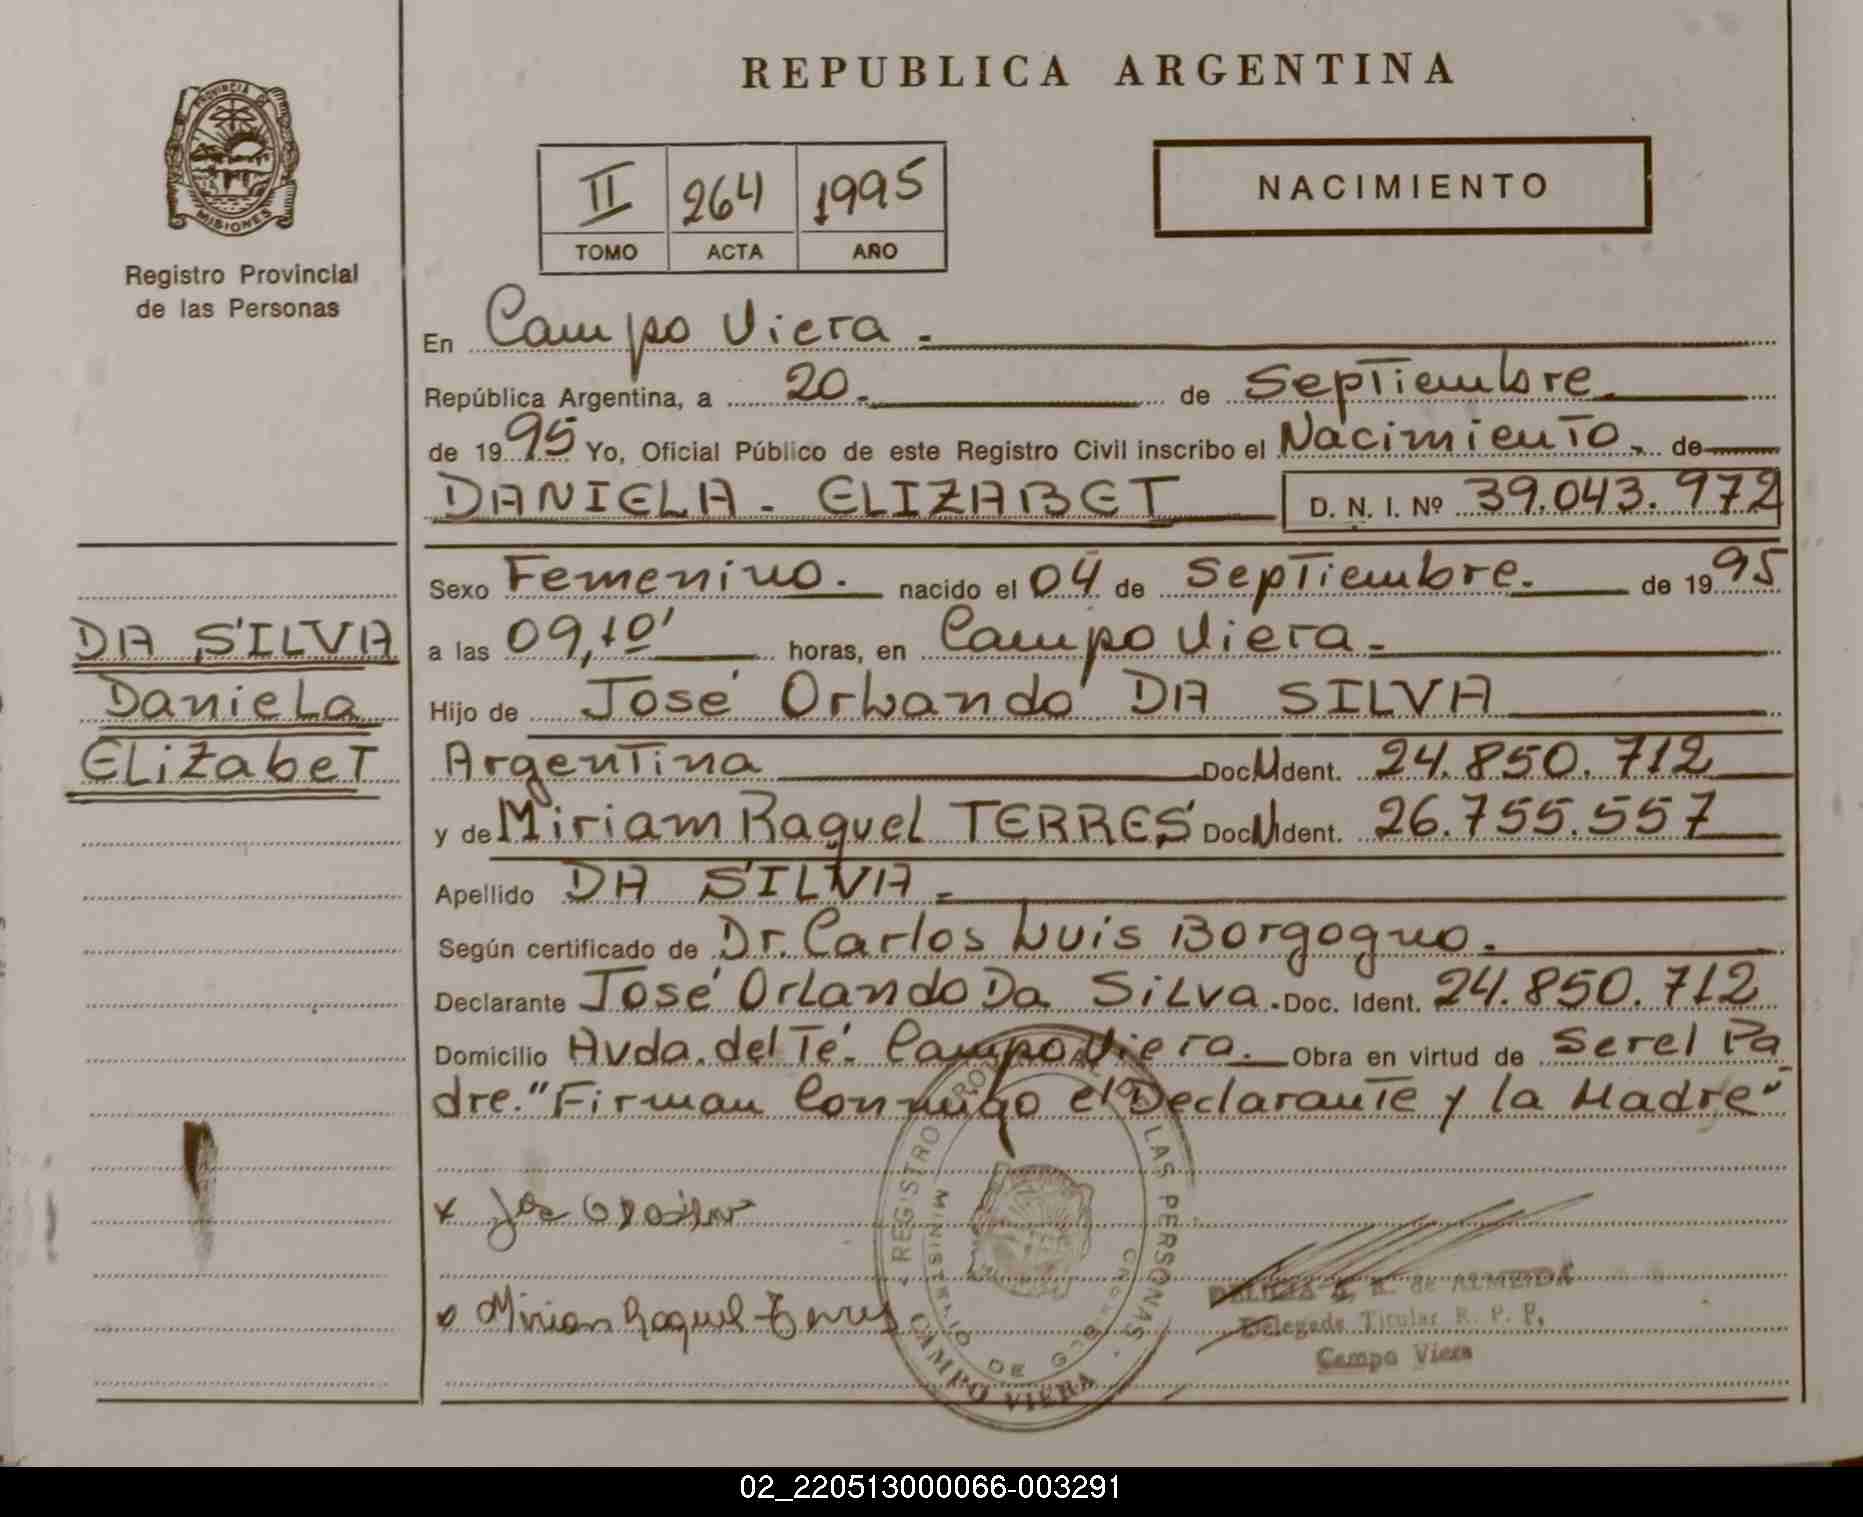 PROVINCIA DE
MISIONES
Registro Provincial
de las Personas
DA SILVA
Daniela
Elizabet
REPUBLICA ARGENTINA
II 264 1995
TOMO ACTA AÑO
NACIMIENTO
En Campo Viera.-
República Argentina, a 20.- de Septiembre
de 1995 Yo, Oficial Público de este Registro Civil inscribo el Nacimiento.- de
DANIELA - ELIZABET D. N. I. Nº 39.043.972
Sexo Femenino. nacido el 04 de Septiembre. de 1995
a las 09,10' horas, en Campo Viera.-
Hijo de José Orlando DA SILVA
Argentina Doc. Ident. 24.850.712
y de Miriam Raquel TERRES Doc. Ident. 26.755.557
Apellido DA SILVA.-
Según certificado de Dr. Carlos Luis Borgogno.-
Declarante José Orlando Da Silva. Doc. Ident. 24.850.712
Domicilio Avda. del Té. Campo Viera. Obra en virtud de Ser el Pa
dre. "Firman Conmigo el Declarante y la Madre"
x Jose O Dasilva
Mirian Raquel Terres
REGISTRO PROVINCIAL DE LAS PERSONAS
MINISTERIO DE GOB
CAMPO VIERA
de ALMEIDA
Delegada Titular R. P. P,
Campo Viera
02_220513000066-003291